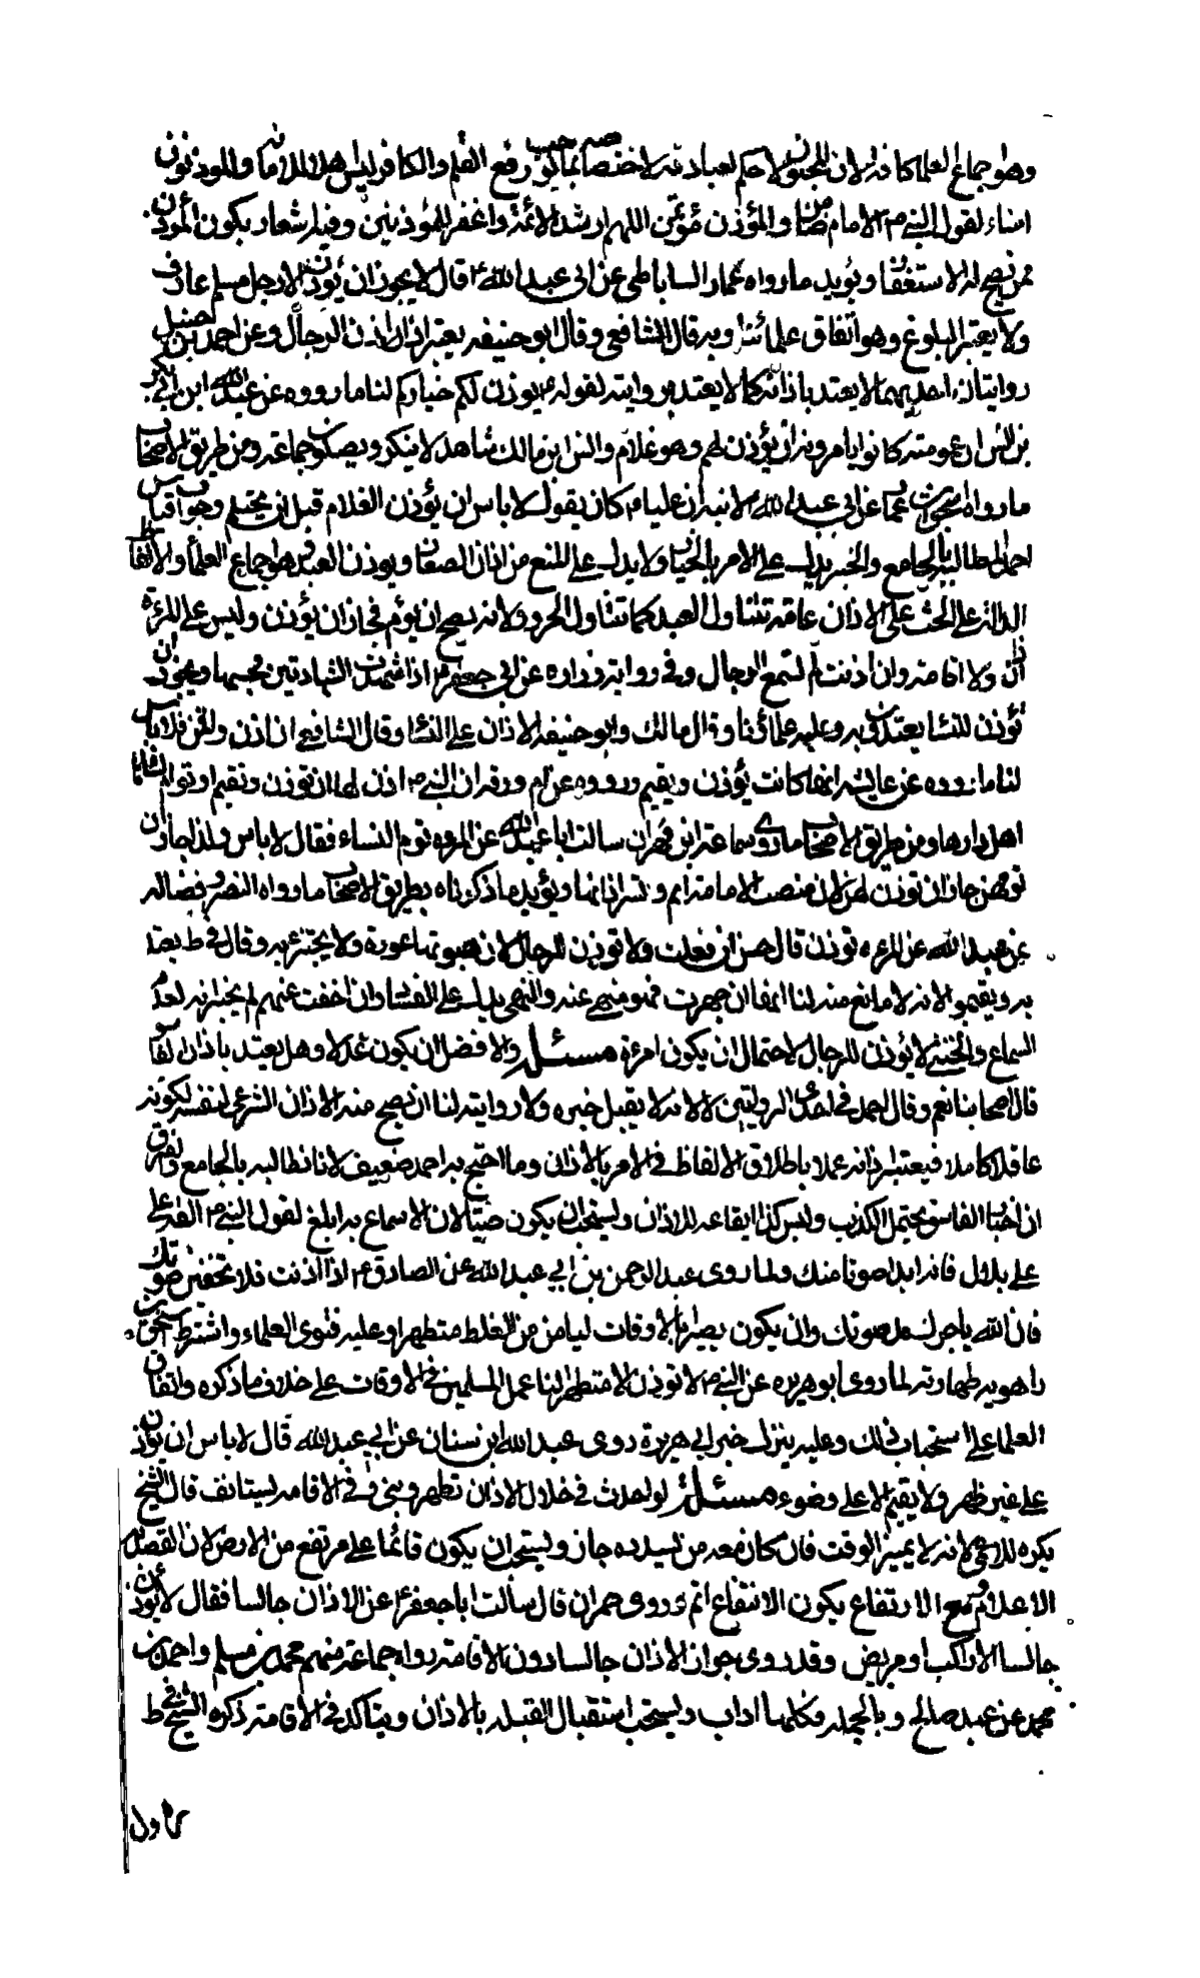 وهو اجماع العلما كافة لان المجنون لا حكم لعبادته لاختصاصه بما يوجب رفع القلم والكافر ليس اهلا للامانة والموذنون
امناء لقول النبي ص الامام ضامن والمؤذن مؤتمن اللهم ارشد الائمة واغفر للمؤذنين وفيه اشعار بكون المؤذن
ممن يصح له الاستغفار ويؤيده ما رواه عمار الساباطي عن ابي عبد الله ع قال لا يجوز ان يؤذن الا رجل مسلم عارف
ولا يعتبر البلوغ وهو اتفاق علمائنا وبه قال الشافعي وقال ابو حنيفه يعتبر اذا اذن للرجال وعن احمد بن حنبل
روايتان احديهما لا يعتد باذانه كما لا يعتد بروايته لقوله ع يوذن لكم خياركم لنا ما رووه عن عبد الله ابن ابي بكر
بن انس ان عمومته كانوا يامرونه ان يؤذن لهم وهو غلام وانس ابن مالك شاهد لا ينكر ويصلون جماعة ومن طريق الاصحاب
ما رواه اسحق بن عمار عن ابي عبد الله ع ان عليا ع كان يقول لا باس ان يؤذن الغلام قبل ان يحتلم وجواب قياس
احمد المطالبة بالجامع والخبر يدل على الامر بالخيار ولا يدل على المنع من اذان الصغار ويوذن العبد وهو اجماع العلما والالفاظ
الدالة على الحث على الاذان عامة تتناول العبد كما تتناول الحر ولانه يصح ان يؤم فجاز ان يؤذن وليس على المرءة
اذان ولا اقامة وان اذنت لم تسمع الرجال وفي رواية زراره عن ابي جعفر ع اذا شهدت الشهادتين فحسبها ويجوز ان
تؤذن للنسا ويعتددن به وعليه علماؤنا وقال مالك وابو حنيفه لا اذان على النسا وقال الشافعي ان اذن واقمن فلا باس
لنا ما رووه عن عايشه انها كانت تؤذن وتقيم ورووه عن ام ورقه ان النبي ص اذن لها ان توذن وتقيم وتوم النسا
اهل دارها ومن طريق الاصحاب ما روى سماعة ابن مهران سالت ابا عبد الله عن المرءه توم النساء فقال لا باس ولما جاز ان
تومهن جاز ان توذن لهن لان منصب الامامة اتم وتسر اذانها ويؤيد ما ذكرناه بطريق الاصحاب ما رواه النصر وفضاله
عن عبد الله عن المرءه توذن قال حسن ان فعلت ولا توذن للرجال لان صوتها عورة ولا يجتزء به وقال في ط يعتد
به ويقيموا لانه لا مانع منه لنا انها ان جهرت فهو منهي عنه والنهي يدل على الفساد وان اخفت عنهم لم يجتزء به لعدم
السماع والخنثى لا يؤذن للرجال لاحتمال ان يكون امرءة مسئلة والافضل ان يكون عدلا وهل يعتد باذان الفاسق
قال اصحابنا نعم وقال احمد في احدى الروايتين لا لانه لا يقبل خبره ولا روايته لنا انه يصح منه الاذان الشرعي لنفسه لكونه
عاقلا كاملا فيعتبر اذانه عملا باطلاق الالفاظ في الامر بالاذان وما احتج به احمد ضعيف لانا نطالبه بالجامع والفرق
ان اخبار الفاسق يحتمل الكذب وليس كذا ايقاعه للاذان ويستحب ان يكون صيتا لان الاسماع به ابلغ لقول النبي ص القه على
على بلال فانه اندا صوتا منك ولما روى عبد الرحمن بن ابي عبد الله عن الصادق ع اذا اذنت فلا تخفين صوتك
فان الله ياجرك مد صوتك وان يكون بصيرا بالاوقات ليامن من الغلط متطهرا وعليه فتوى العلماء واشترط اسحق بن
راهويه طهارته لما روى ابو هريره عن النبي ص لا توذن الا متطهرا لنا عمل المسلمين في الاوقات على خلاف ما ذكره واتفاق
العلما على استحباب ذلك وعليه ينزل خبر ابي هريرة روى عبد الله ابن سنان عن ابي عبد الله قال لا باس ان يوذن
على غير طهر ولا يقيم الا على وضوء مسئلة لو احدث في خلال الاذان تطهر وبنى وفي الاقامة يستانف قال الشيخ
يكره للاعمى لانه لا يميز الوقت فان كان معه من يسدده جاز ويستحب ان يكون قائما على مرتفع من الارض لان القصد
الاعلام ومع الارتفاع يكون الانتفاع اتم وروى حمران قال سألت ابا جعفر ع عن الاذان جالسا فقال لا يؤذن
جالسا الا راكب او مريض وقد روى جواز الاذان جالسا دون الاقامة رواه جماعة منهم محمد بن مسلم واحمد بن
محمد عن عبد صالح وبالجملة فكلها اداب ويستحب استقبال القبلة بالاذان ويتاكد في الاقامة ذكره الشيخ في ط